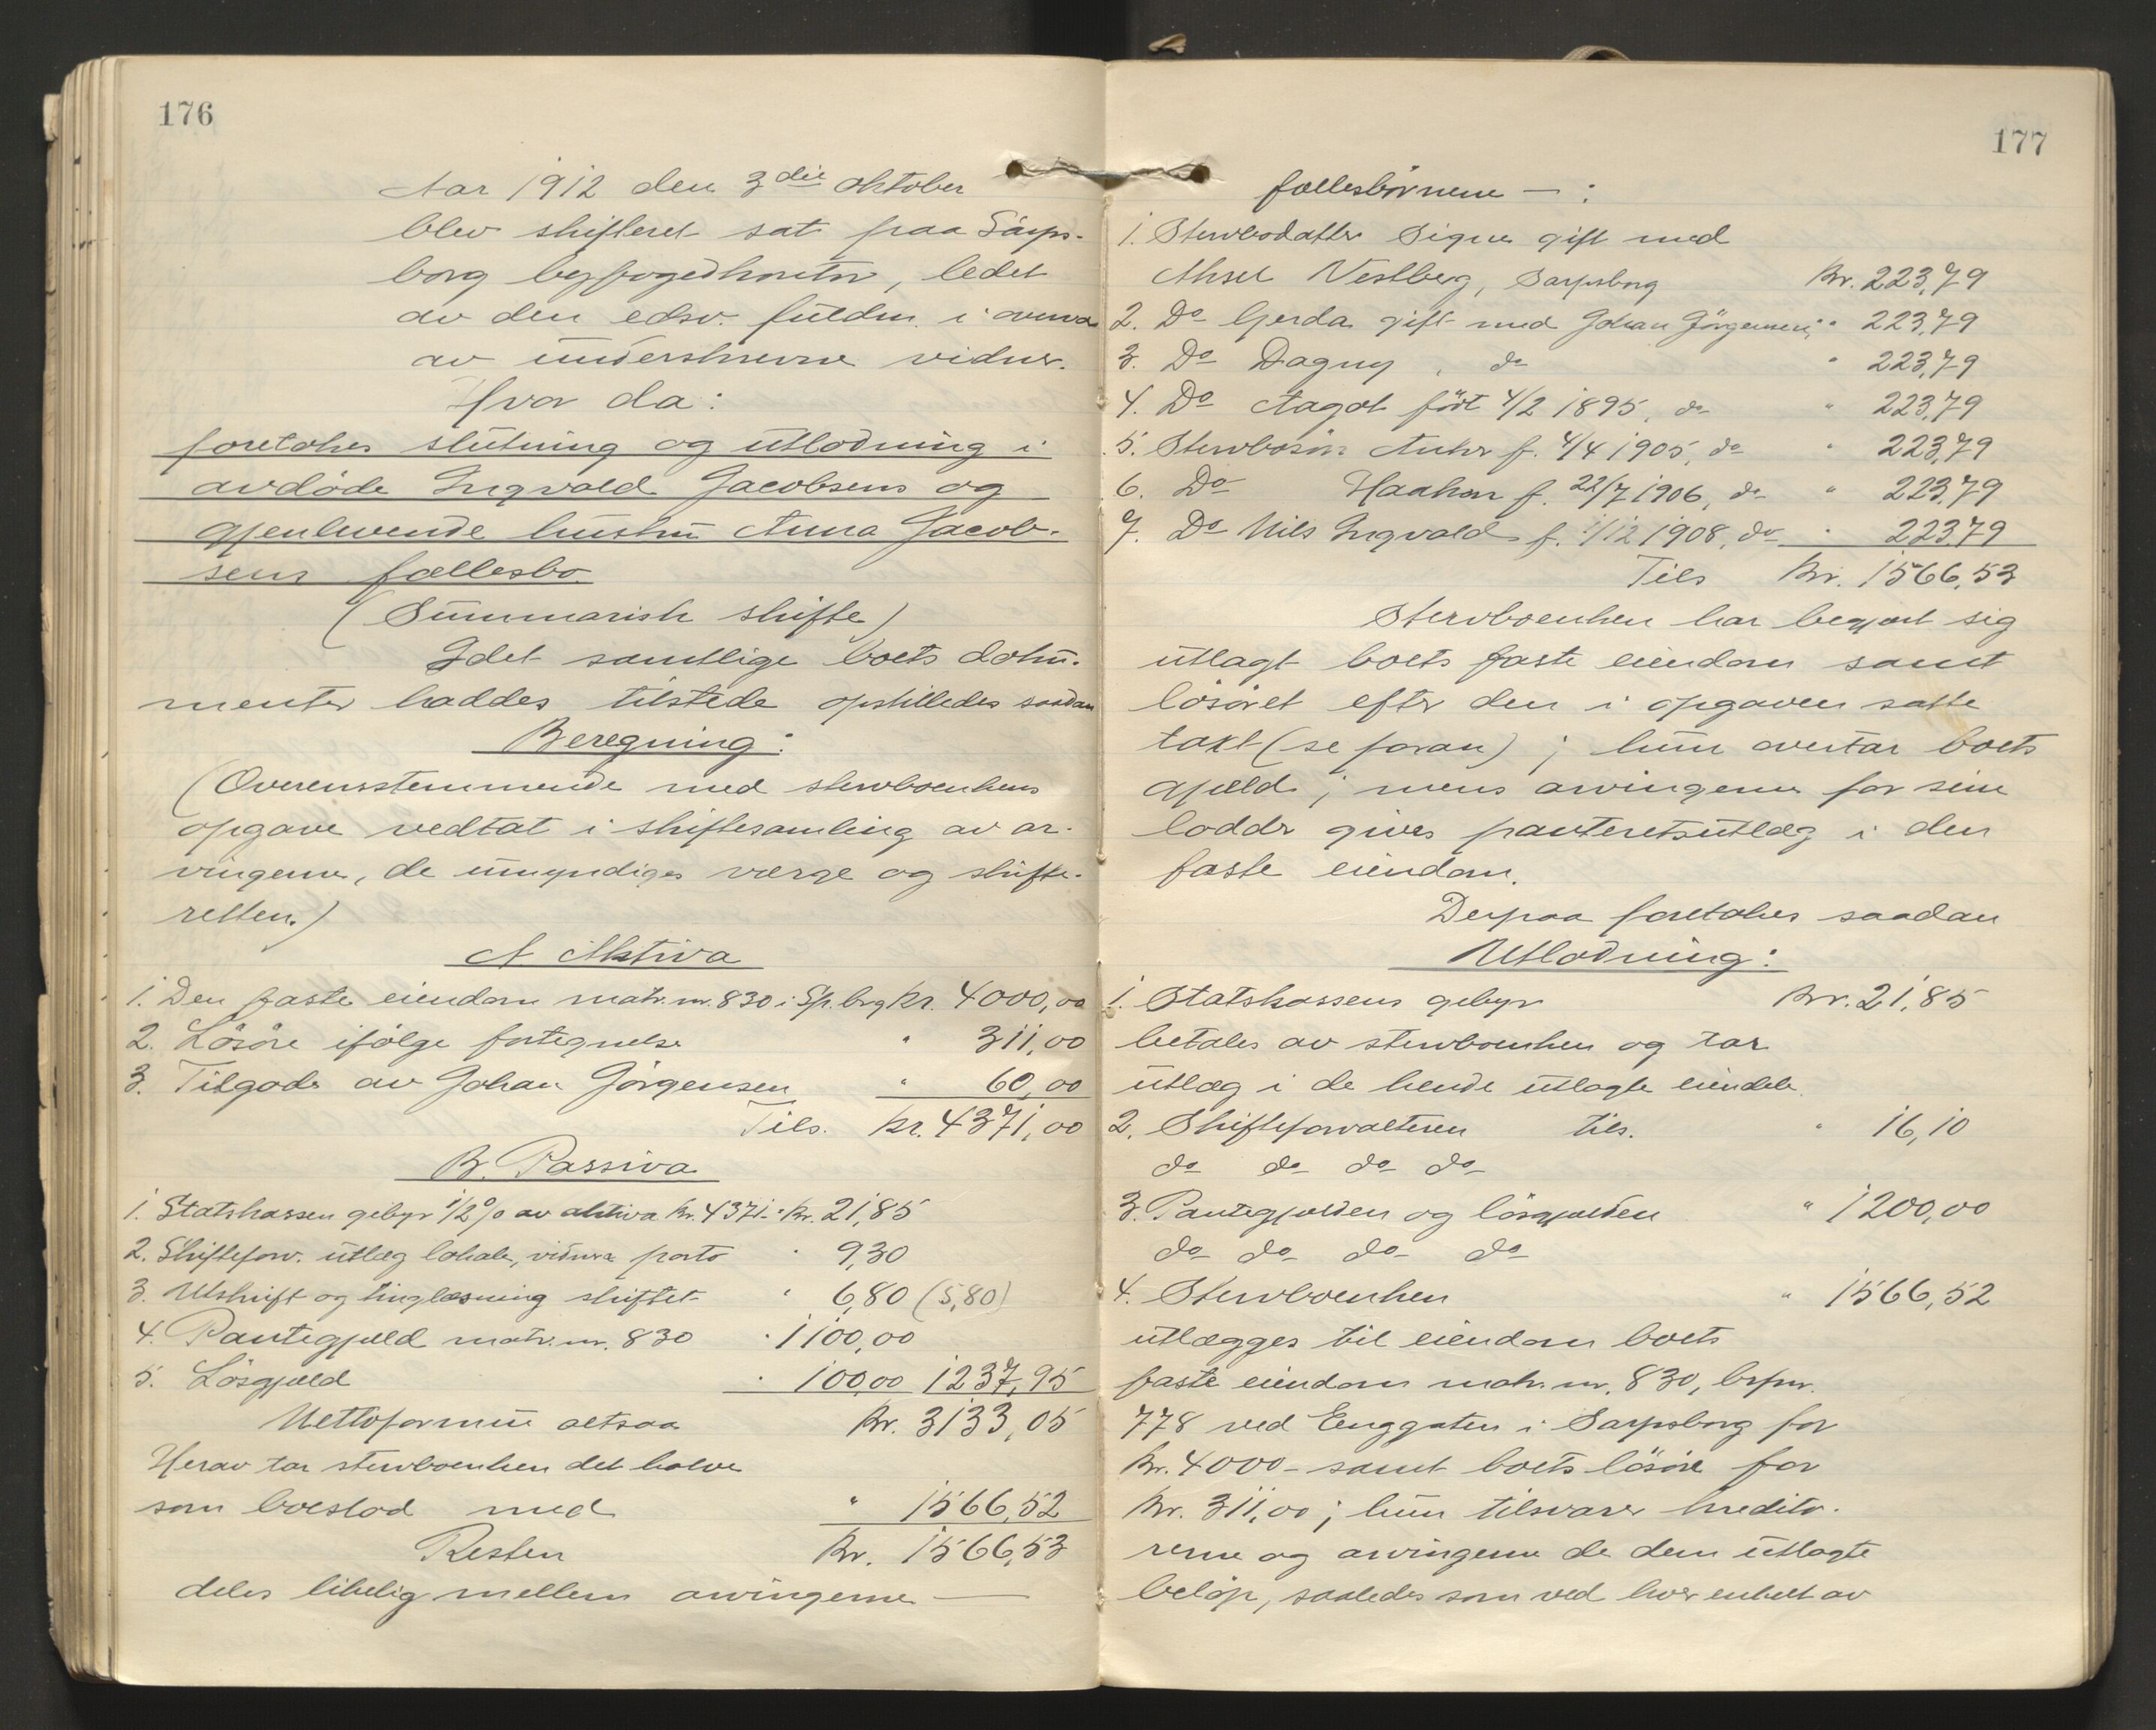 176
Aar 1912 den 3die oktober
blev skifteret sat paa Sarps-
borg byfogedkontor, ledet
av den edsv. fuldm. i overvær
av underskrevne vidner.
Hvor da:
foretokes slutning og utlodning i
avdöde Ingvald Jacobsens og
gjenlevende hustru Anna Jacob-
sens fællesbo
(Summarisk skifte)
Idet samtlige boets doku-
menter haddes tilstede opstilledes saadan
Beregning:
(Overensstemmende med stervboenkens
opgave vedtat i skiftesamling av ar-
vingerne, de umyndiges værge og skifte-
retten.)
A Aktiva
1. Den faste eiendom matr. nr. 830 i Sp.brg kr. 4000,00
2. Lösöre ifölge fortegnelse " 311,00
3. Tilgode av Johan Jörgensen " 60,00
Tils. kr. 4371,00
B. Passiva
1. Statskassen gebyr 1/2 % av aktiva kr. 4371.- kr. 21,85
2. Skifteforv. utlæg lokale, vidner porto " 9,30
3. Utskrift og tinglæsning skiftet " 6,80 (5,80)
4. Pantegjæld matr. nr. 830 " 1100,00
5. Lösgjæld " 100,00 1237,95
Nettoformue altsaa Kr. 3133,05
Herav tar stervboenken det halve
som boeslod med " 1566,52
Resten Kr. 1566,53
deles likelig mellem arvingerne —
177
fællesbörnene — :
1. Stervbodatter Signe gift med
Aksel Vestberg, Sarpsborg Kr. 223,79
2. Do Gerda gift med Johan Jörgensen, " 223,79
3. Do Dagny , do " 223,79
4. Do Aagot födt 4/2 1895, do " 223,79
5. Stervbosön Anker f. 4/4 1905, do " 223,79
6. Do Haakon f. 22/7 1906, do " 223,79
7. Do Nils Ingvald f. 1/12 1908, do " 223,79
Tils Kr. 1566,53
Stervboenken har begjært sig
utlagt boets faste eiendom samt
lösöret efter den i opgaven satte
takt (se foran) ; hun overtar boets
gjæld ; mens arvingerne for sine
lodder gives panteretsutlæg i den
faste eiendom.
Derpaa foretokes saadan
Utlodning:
1. Statskassens gebyr Kr. 21,85
betales av stervboenken og tar
utlæg i de hende utlagte eiendele.
2. Skifteforvalteren tils. " 16,10
do do do do
3. Pantegjælden og lösgjælden " 1200,00
do do do do
4. Stervboenken " 1566,52
utlægges til eiendom boets
faste eiendom matr. nr. 830, brpnr.
778 ved Enggaten i Sarpsborg for
Kr. 4000 - samt boets lösöre for
Kr. 311,00 ; hun tilsvarer kredito-
rerne og arvingerne de dem utlagte
belöp, saaledes som ved hver enkelt av